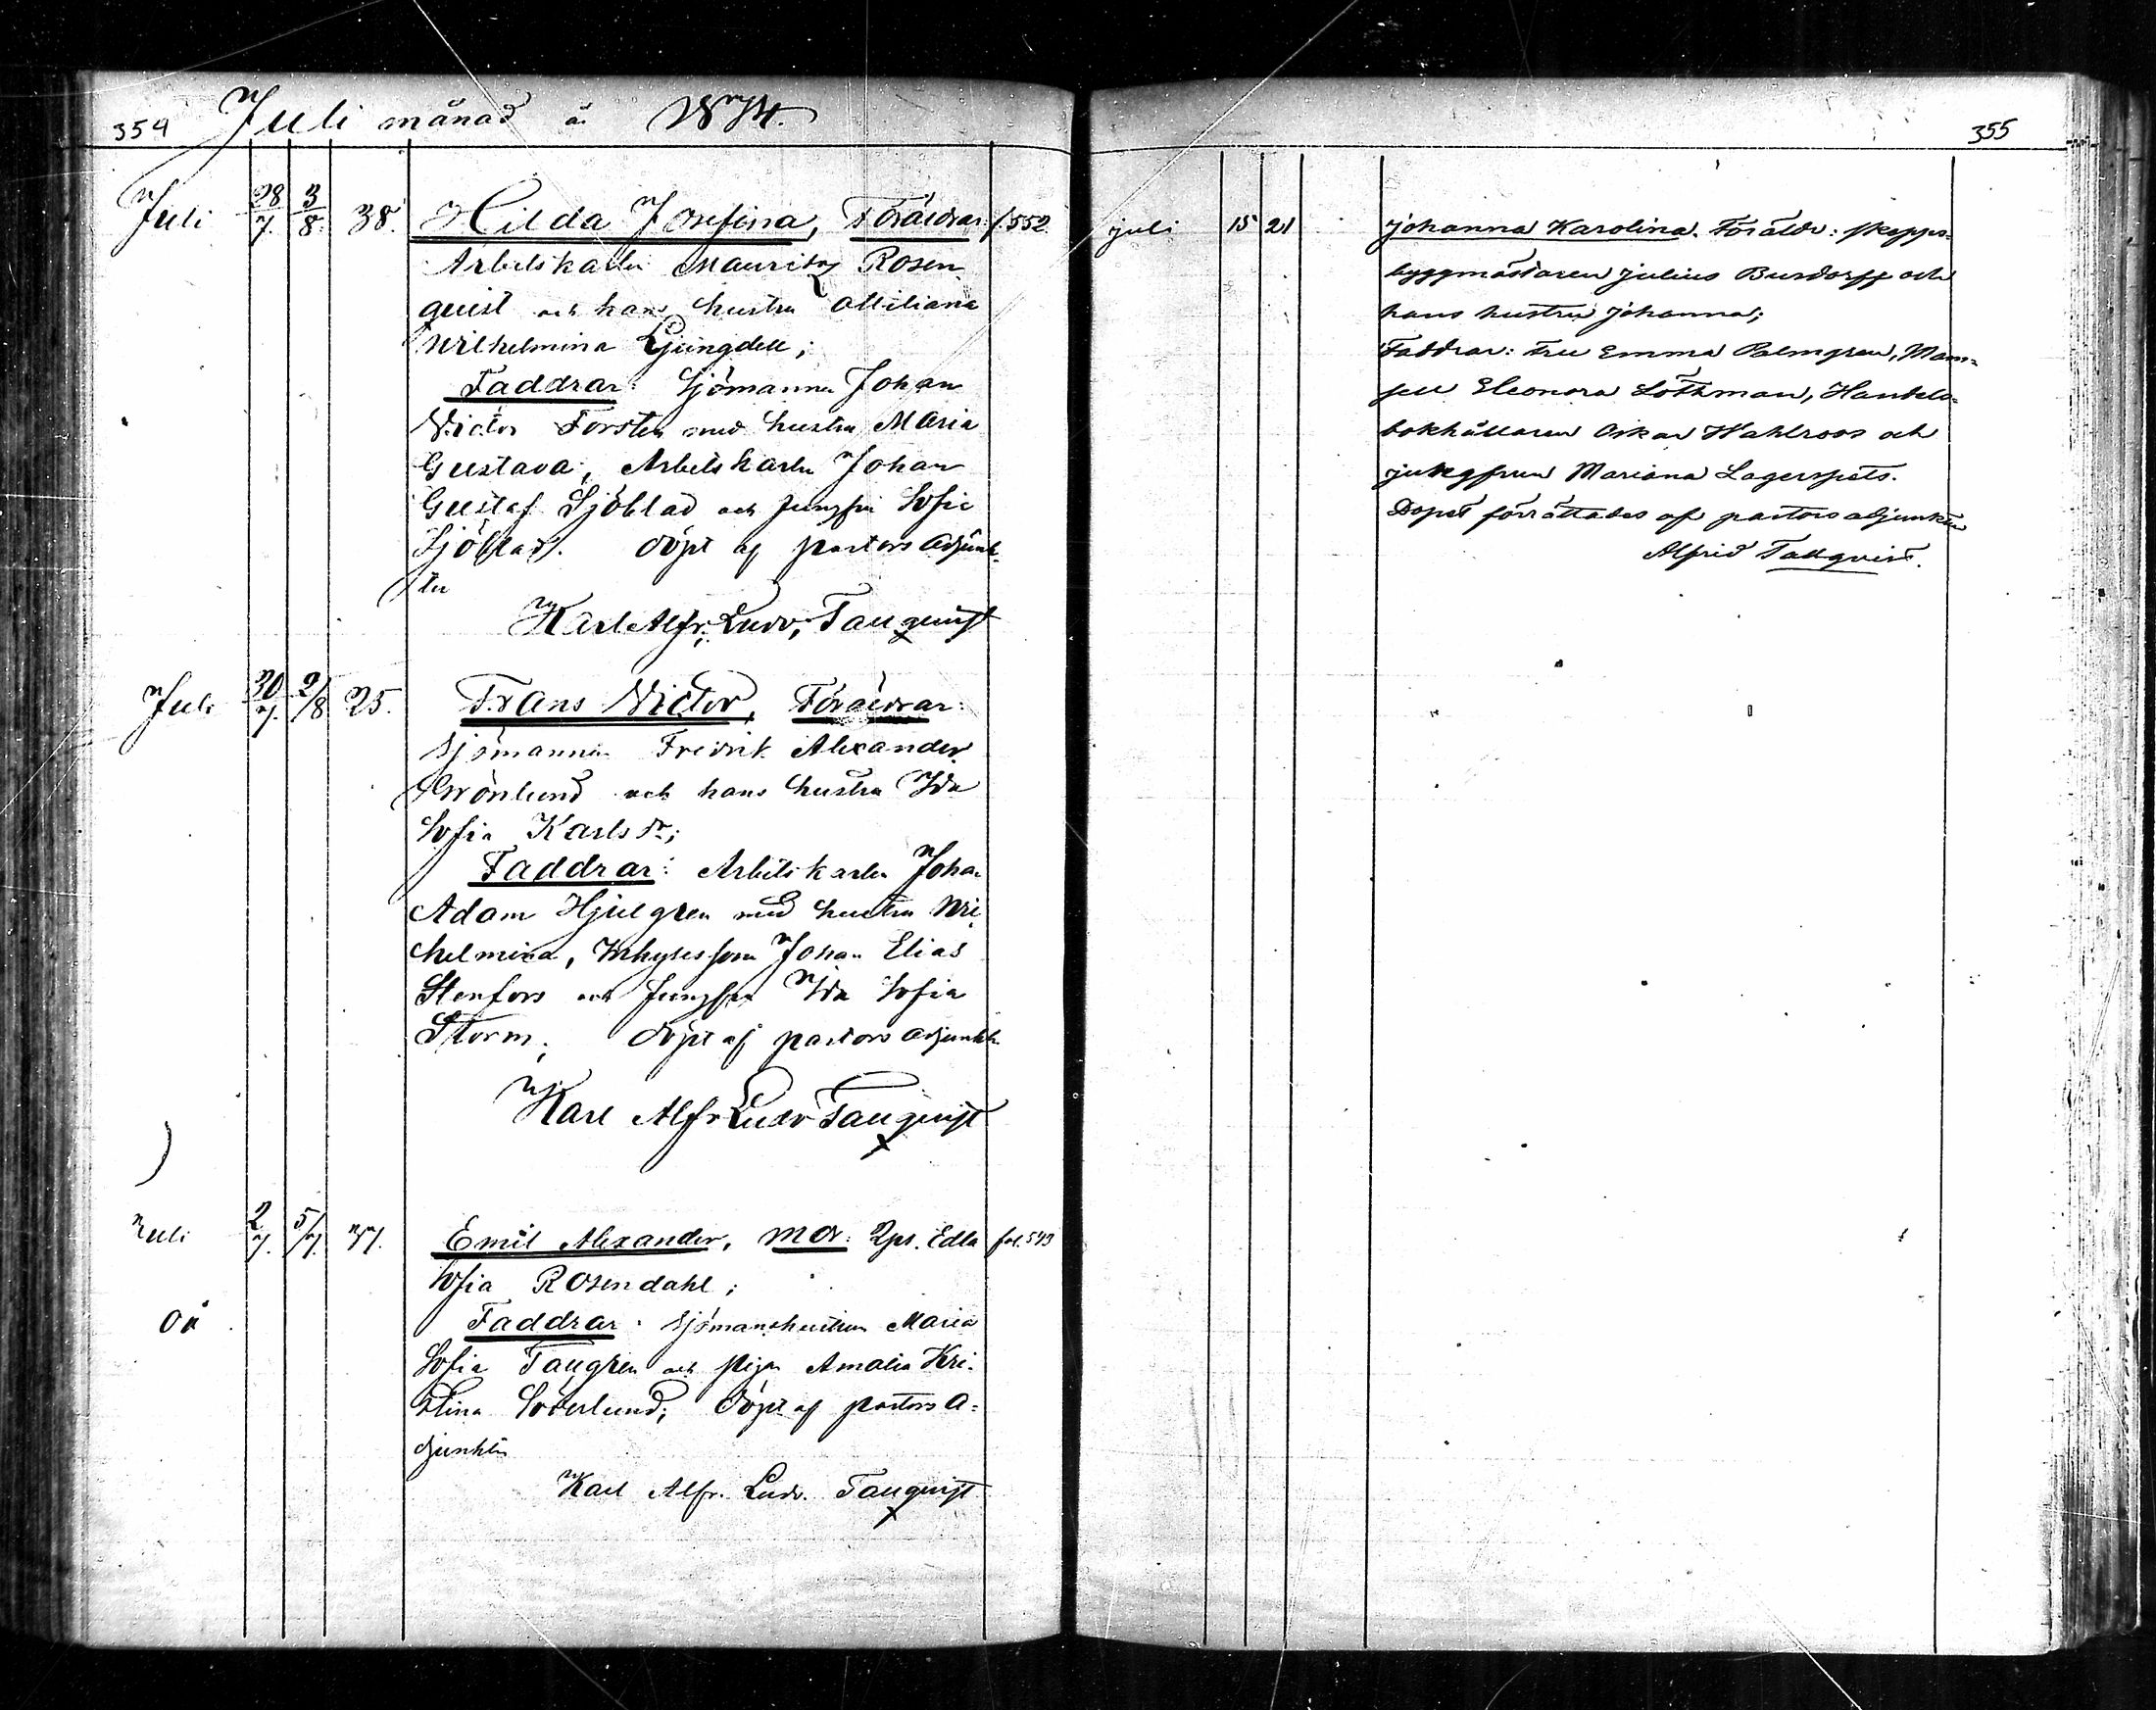 354 Juli månad å 1874.
Juli 28/7. 3/8. 38. Hilda Josefina, Föräldrar: f. 552
Arbetskarln Mauritz Rosen
quist och hans hustru Ottiliana
Wilhelmina Ljungdell;
Faddrar: Sjömannen Johan
Victor Forsten med hustru Maria
Gustava, Arbetskarln Johan
Gustaf Sjöblad och Jungfru Sofia
Sjöblad. döpt af pastors Adjunk-
ten
Karl Alfr. Ludv. Tallquist
Juli 30/7. 2/8 25. Frans Victor, Föräldrar:
Sjömannen Fredrik Alexander
Grönlund och hans hustru Ida
Sofia Karlsdr;
Faddrar: Arbetskarln Johan
Adam Hjelgren med hustru Wil
helmina, Inhyseson Johan Elias
Stenfors och Jungfru Ida Sofia
Storm; döpt af pastors adjunkten
Karl Alfr Ludv Tallquist
Juli 2/7. 5/7. 77. Emil Alexander, Mor: Qps. Edla fol. 549
Sofia Rosendahl;
oä Faddrar: Sjömanshustrun Maria
Sofia Tallgren och Pigan Amalia Kri-
stina Söderlund; döpt af pastors A=
djunkten
Karl Alfr. Ludv. Tallquist
355
juli 15 21 Johanna Karolina. Föräldr: skepps-
byggmästaren Julius Burdorff och
hans hustru Johanna;
Faddrar: Fru Emma Palmgren, Mam=
sell Eleonora Löthman, Handels-
bokhållaren Oskar Wahlroos och
jungfrun Mariana Lagerspets.
Dopet förrättades af pastorsadjunkten
Alfrid Tallqvist.